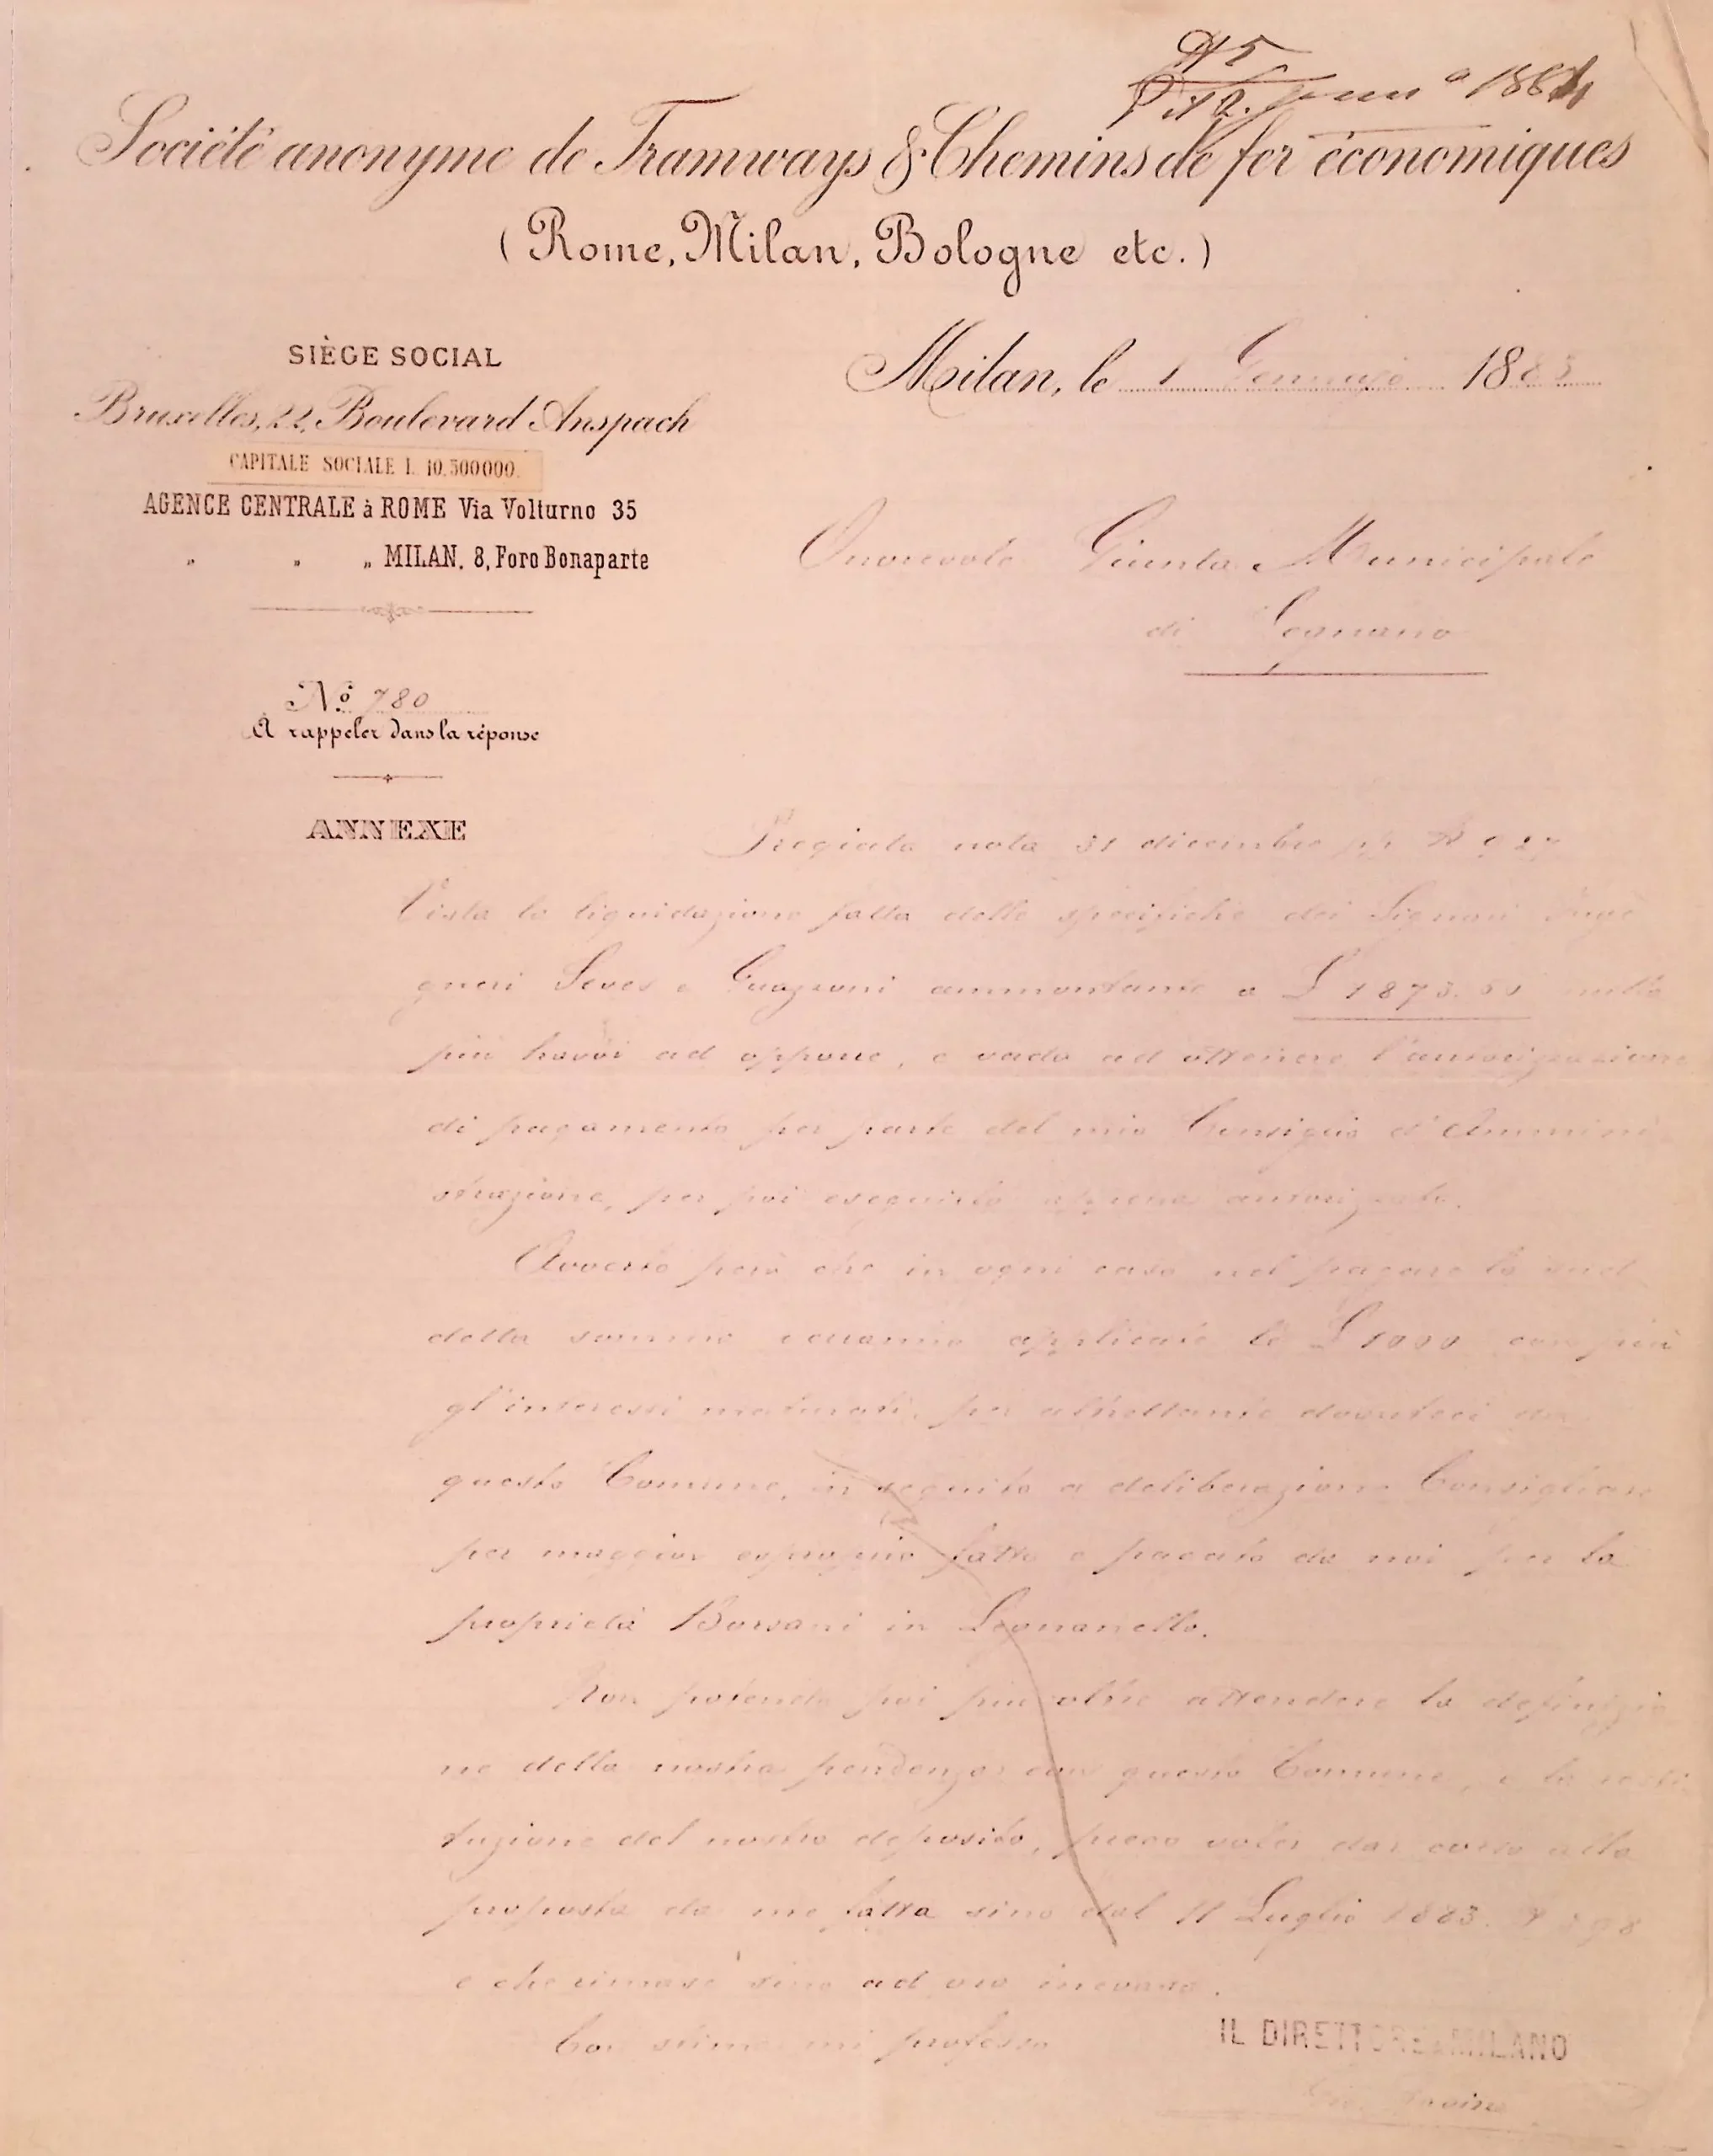 N 5
P. 12. Genn° 1884
Société anonyme de Tramways & Chemins de fer économiques
(Rome, Milan, Bologne etc.)
SIÈGE SOCIAL
Milan, le 1 Gennajo 1883
Bruxelles, 22, Boulevard Anspach
CAPITALE SOCIALE L. 10.500000.
AGENCE CENTRALE à ROME Via Volturno 35
„ „ „ MILAN, 8, Foro Bonaparte
Onorevole Giunta Municipale
di Legnano
No. 780
À rappeler dans la réponse
ANNEXE
Pregiata nota 31 dicembre pp N 927
Vista la liquidazione fatta delle specifiche dei Signori Inge
gneri Seves e Guazzoni ammontante a L 1873. nulla
più havvi ad opporre, e vado ad ottenere l'autorizzazione
di pagamento per parte del mio Consiglio d'Ammini
strazione, per poi eseguirlo appena autorizzato.
Avverto però che in ogni caso nel pagare la sud
detta somma applicate le L 1000 con più
gl'interessi maturati, per altrettante dovuteci da
questo Comune, in seguito a deliberazione Consigliare
per maggior esproprio fatto e pagato da noi per la
proprietà Borsani in Legnanello.
Non potendo poi più oltre attendere la definizio
ne della nostra pendenza con questo Comune, e la resti
tuzione del nostro deposito, prego voler dar corso alla
proposta da me fatta sino dal 11 Luglio 1883. N 398
e che rimase sino ad ora inevasa.
Con stima mi professo
IL DIRETTORE MILANO